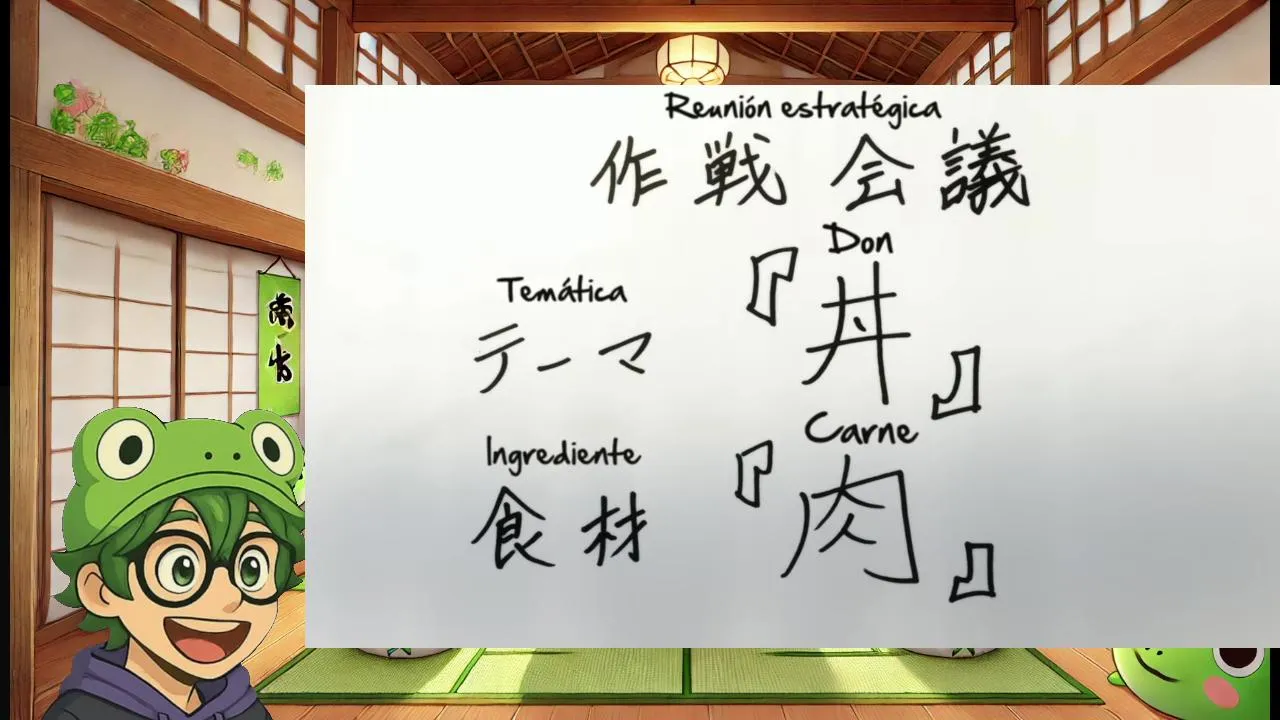 Reunión estratégica
作戦会議
Don
『丼』
Temática
テーマ
Carne
『肉』
Ingrediente
食材